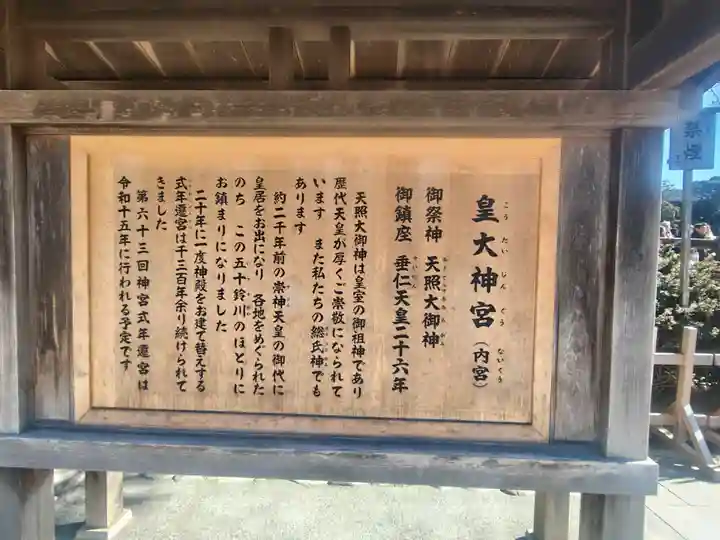 皇大神宮(内宮)
こうたいじんぐう ないくう
御祭神 天照大御神
あまてらすおおみかみ
御鎮座 垂仁天皇二十六年
すいにん
天照大御神は皇室の御祖神であり
歴代天皇が厚くご崇敬になられて
います また私たちの総氏神でも
あります
約二千年前の崇神天皇の御代に
皇居をお出になり 各地をめぐられた
のち この五十鈴川のほとりに
お鎮まりになりました
二十年に一度神殿をお建て替えする
式年遷宮は千三百年余り続けられて
きました
第六十三回神宮式年遷宮は
令和十五年に行われる予定です
禁煙